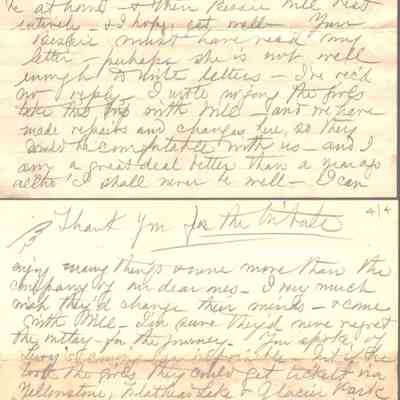 be at home - & then Bessie Mill rest
entirely - & I hope, eat well - Your
Bessie must have read my
letter, perhaps she is not well
enough to write letters - I've rec'd
no reply - I wrote urging the girls
take this trip with Mill - and we have
made repairs and changes here, so they
would be comfortable with us - and I
am a great deal better than a year ago
altho' I shall never be well - I can
Thank you for the tribute
4/4
enjoy many things & none more than the
company of our dear ones - I very much
wish they'd change their minds - & come
with Mill - I'm sure they'd never regret
the outlay - for the journey. You spoke of
- but if the
took the girls they could get tickets via
Yellowstone, Flathead Lake & Glacier Park